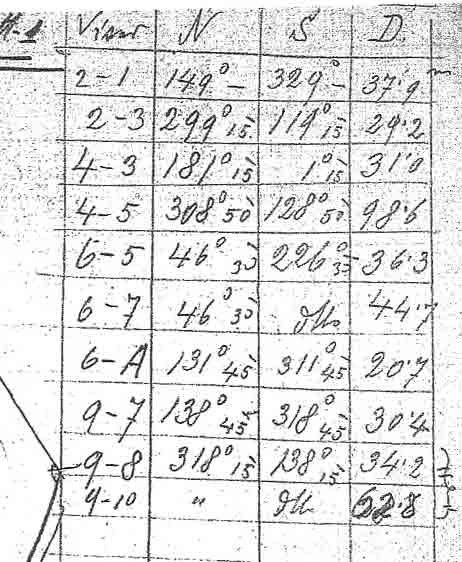 N S D.
2-1 149° — 329° — 37.9 m
2-3 299° 15 119° 15 29.2
4-3 181° 15 1° 15 31.0
4-5 308° 50 128° 50 98.6
6-5 46° 30 226° 30 36.3
6-7 46° 30 dtto 44.7
6-A 131° 45 311° 45 20.7
9-7 138° 45 318° 45 30.4
9-8 318° 15 138° 15 34.2
9-10 " dtto